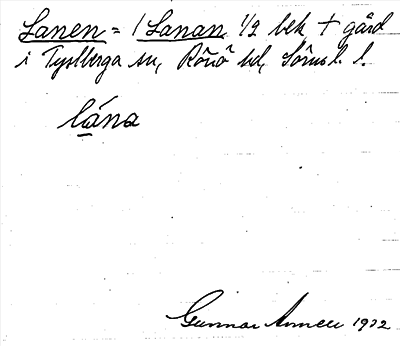 Lanen = 1 Lanan 1/2 bek + gård
i Tystberga sn, Rönö hd, Sörml. l.
lána
Gunnar Annell 1932